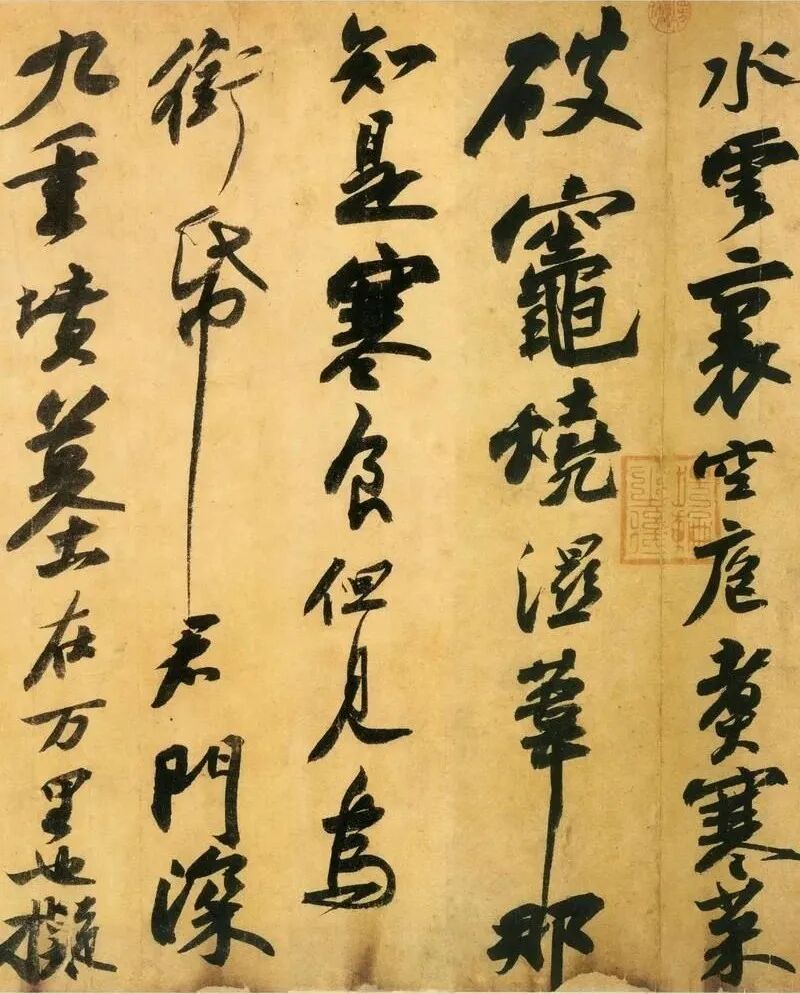 水雲裏空庖煮寒菜
破竈燒濕葦那
知是寒食但見烏
銜帋君門深
九重墳墓在万里也擬